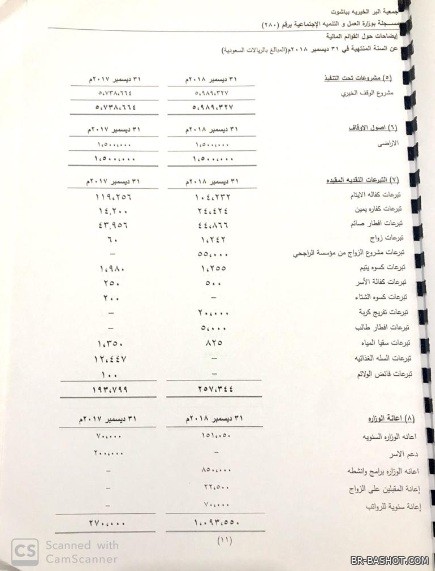 جمعية البر الخيريه بباشوت
مسجلة بوزارة العمل و التنميه الإجتماعية برقم (٢٨٠)
إيضاحات حول القوائم المالية
عن السنة المنتهية في ٣١ ديسمبر ٢٠١٨م(المبالغ بالريالات السعودية)
(٥) مشروعات تحت التنفيذ ٣١ ديسمبر ٢٠١٨م ٣١ ديسمبر ٢٠١٧م
مشروع الوقف الخيري ٥،٩٨٩،٣٢٧ ٥،٧٣٨،٦٦٤
٥،٩٨٩،٣٢٧ ٥،٧٣٨،٦٦٤
(٦) اصول الاوقاف ٣١ ديسمبر ٢٠١٨م ٣١ ديسمبر ٢٠١٧م
الاراضى ١،٥٠٠،٠٠٠ ١،٥٠٠،٠٠٠
١،٥٠٠،٠٠٠ ١،٥٠٠،٠٠٠
(٧) التبرعات النقديه المقيده ٣١ ديسمبر ٢٠١٨م ٣١ ديسمبر ٢٠١٧م
تبرعات كفاله الايتام ١٠٤،٢٣٢ ١١٩،٢٥٦
تبرعات كفاره يمين ٢٤،٤٢٤ ١٤،٢٠٠
تبرعات افطار صائم ٤٤،٨٦٦ ٤٣،٩٥٦
تبرعات زواج ١،٢٤٢ ٦٠
تبرعات مشروع الزواج من مؤسسة الراجحي ٥٥،٠٠٠ –
تبرعات كسوه يتيم ١،٢٥٥ ١،٩٨٠
تبرعات كفالة الأسر ٥٠٠ ٢٥٠
تبرعات كسوه الشتاء – ٢٠٠
تبرعات تفريج كربة ٢٠،٠٠٠ –
تبرعات افطار طالب ٥،٠٠٠ –
تبرعات سقيا المياه ٨٢٥ ١،٣٥٠
تبرعات السله الغذائيه – ١٢،٤٤٧
تبرعات فائض الولائم – ١٠٠
٢٥٧،٣٤٤ ١٩٣،٧٩٩
(٨) اعانة الوزاره ٣١ ديسمبر ٢٠١٨م ٣١ ديسمبر ٢٠١٧م
اعانه الوزاره السنويه ١٥١،٠٥٠ ٧٠،٠٠٠
دعم الاسر – ٢٠٠،٠٠٠
اعانه الوزاره برامج وانشطه ٨٥٠،٠٠٠ –
إعانة المقبلين على الزواج ٢٢،٥٠٠ –
إعانة سنوية للرواتب ٧٠،٠٠٠ –
١،٠٩٣،٥٥٠ ٢٧٠،٠٠٠
(١١)
CS Scanned with
CamScanner
BR-BASHOT.COM